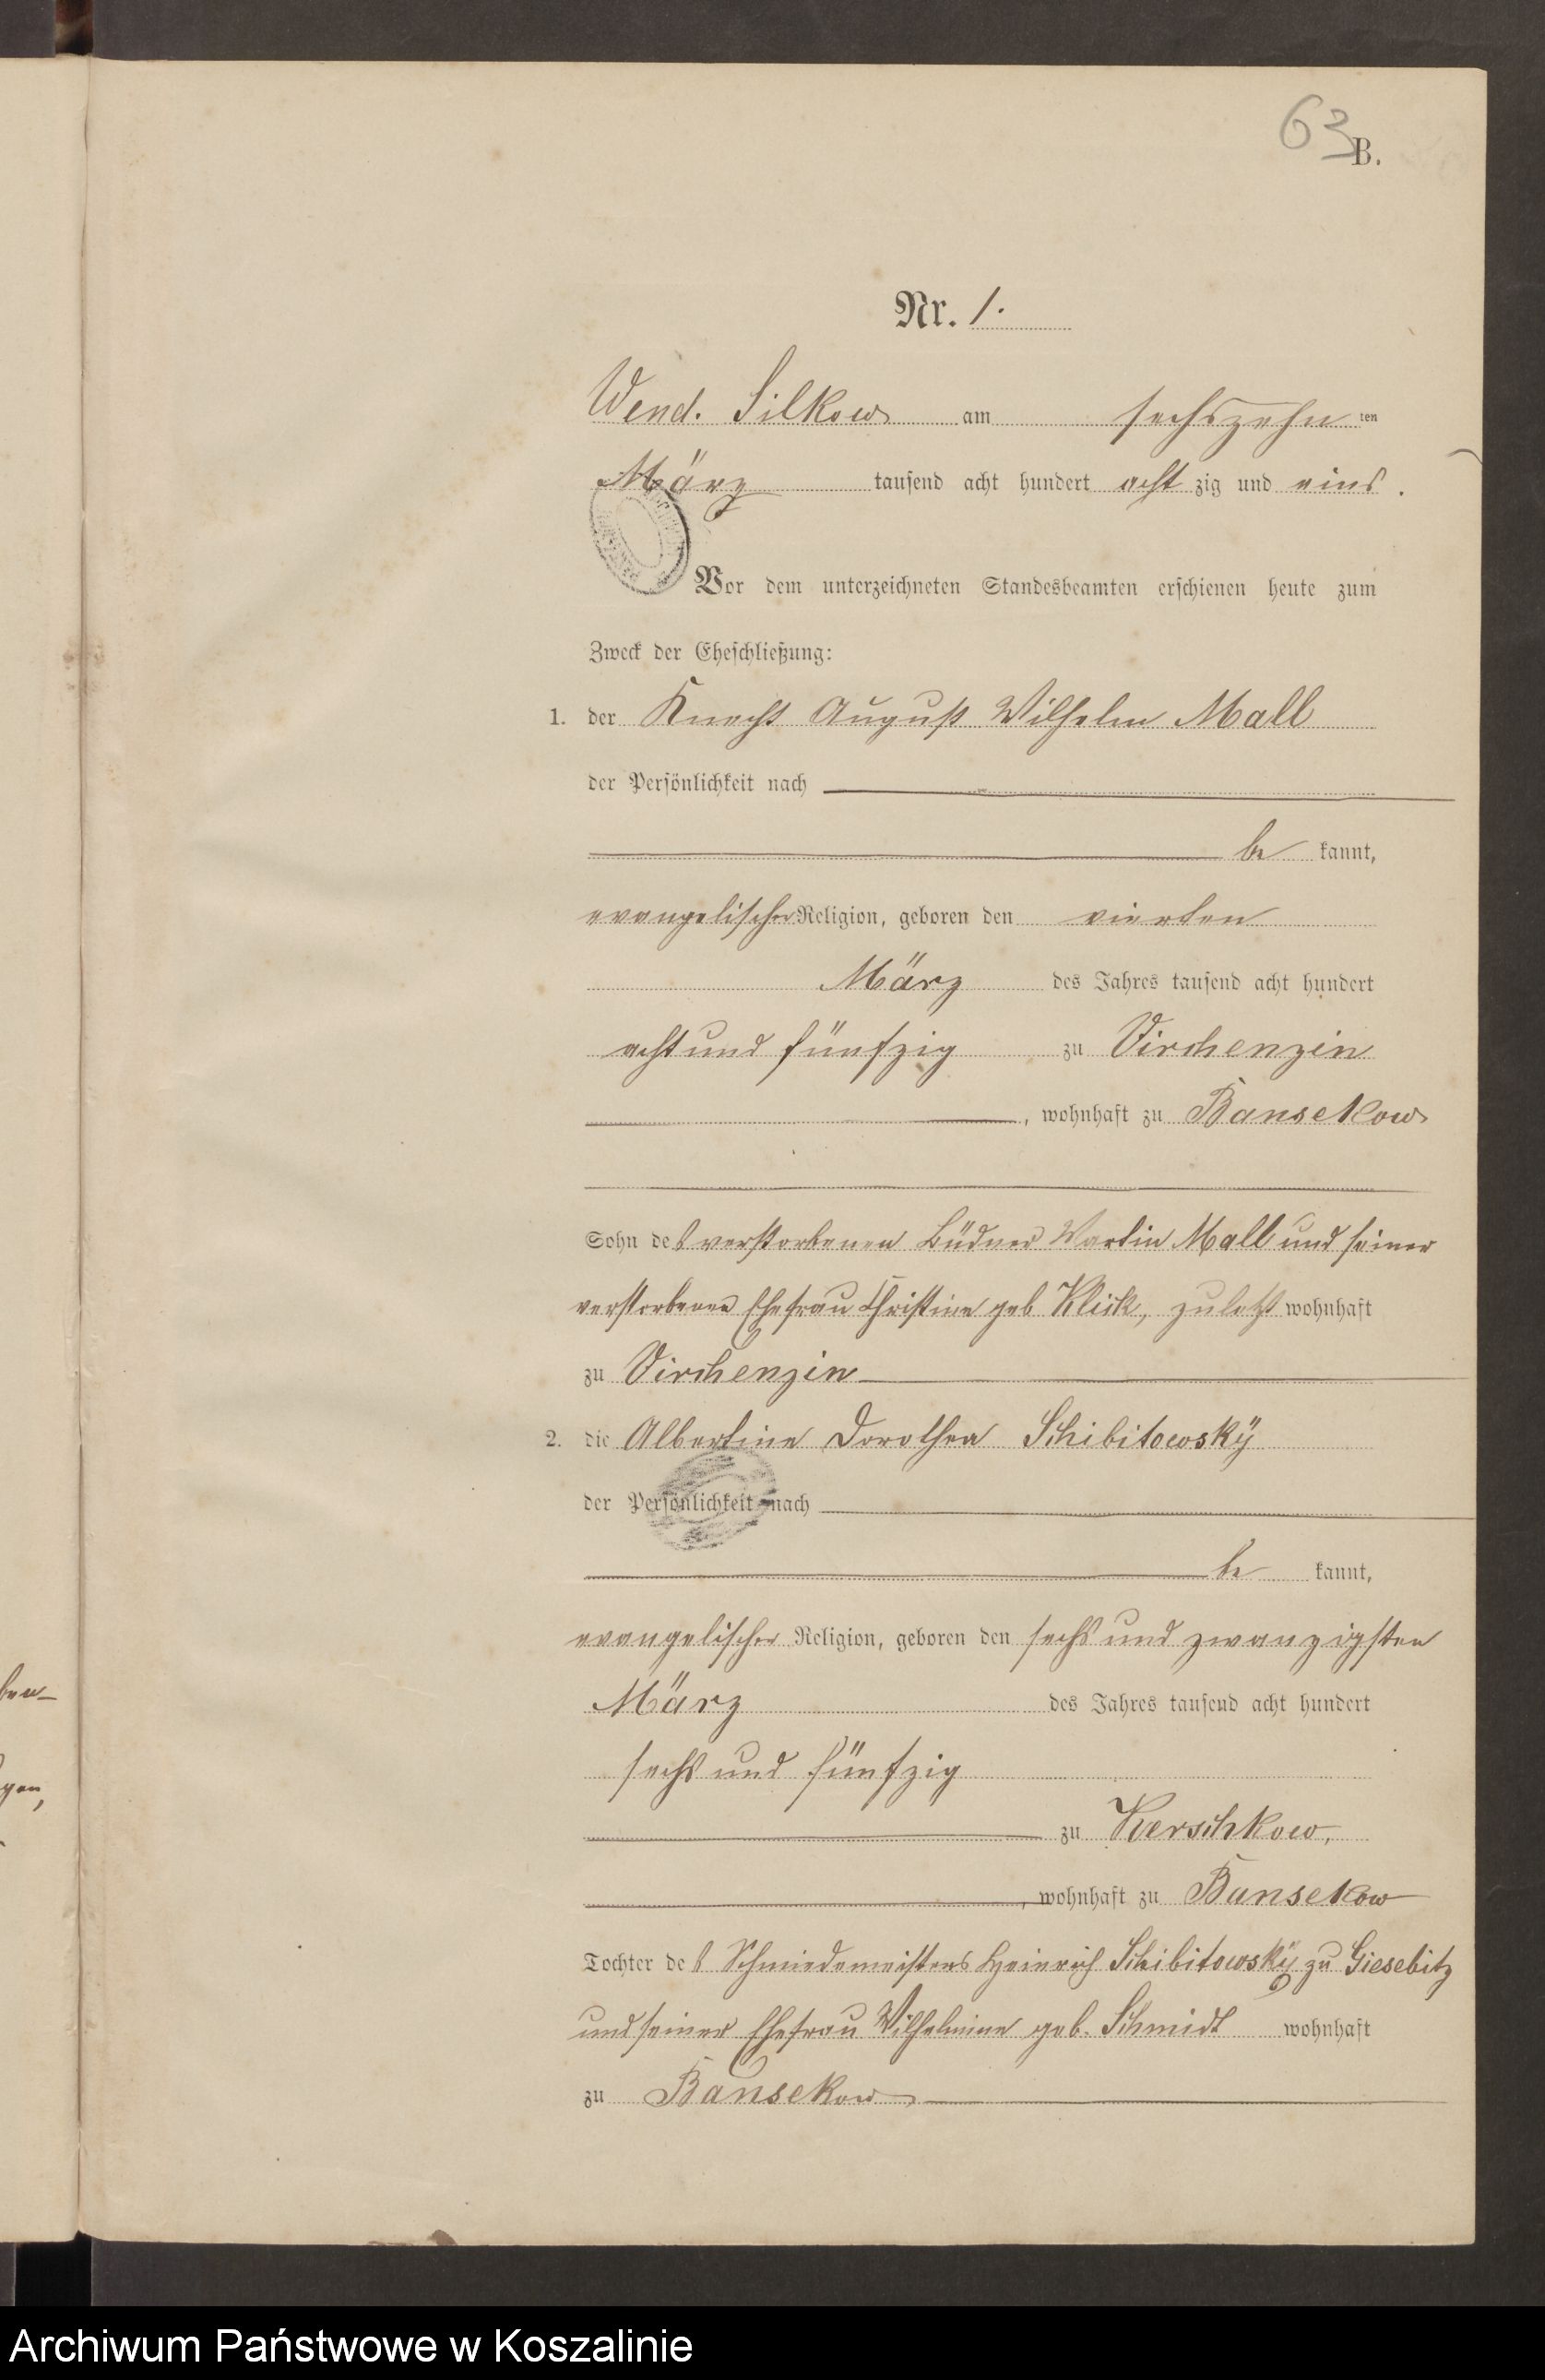 63
B.
Nr. 1.
Wend. Silkow am sechszehn ten
März tausend acht hundert acht zig und eins.
Vor dem unterzeichneten Standesbeamten erschienen heute zum
Zweck der Eheschließung:
1. der Knecht August Wilhelm Mall
der Persönlichkeit nach
be kannt,
evangelischer Religion, geboren den vierten
März des Jahres tausend acht hundert
acht und fünfzig zu Virchenzin
, wohnhaft zu Bansekow
Sohn des verstorbenen Büdner Martin Mall und seiner
verstorbenen Ehefrau Christine geb Klick, zuletzt wohnhaft
zu Virchenzin
2. die Albertine Dorothea Schibitowskÿ
der Persönlichkeit nach
be kannt,
evangelischer Religion, geboren den sechs und zwanzigsten
März des Jahres tausend acht hundert
sechs und fünfzig
zu Kerschkow,
, wohnhaft zu Bansekow
Tochter des Schmiedemeisters Heinrich Schibitowskÿ zu Giesebitz
und seiner Ehefrau Wilhelmine geb. Schmidt wohnhaft
zu Bansekow
Archiwum Państwowe w Koszalinie